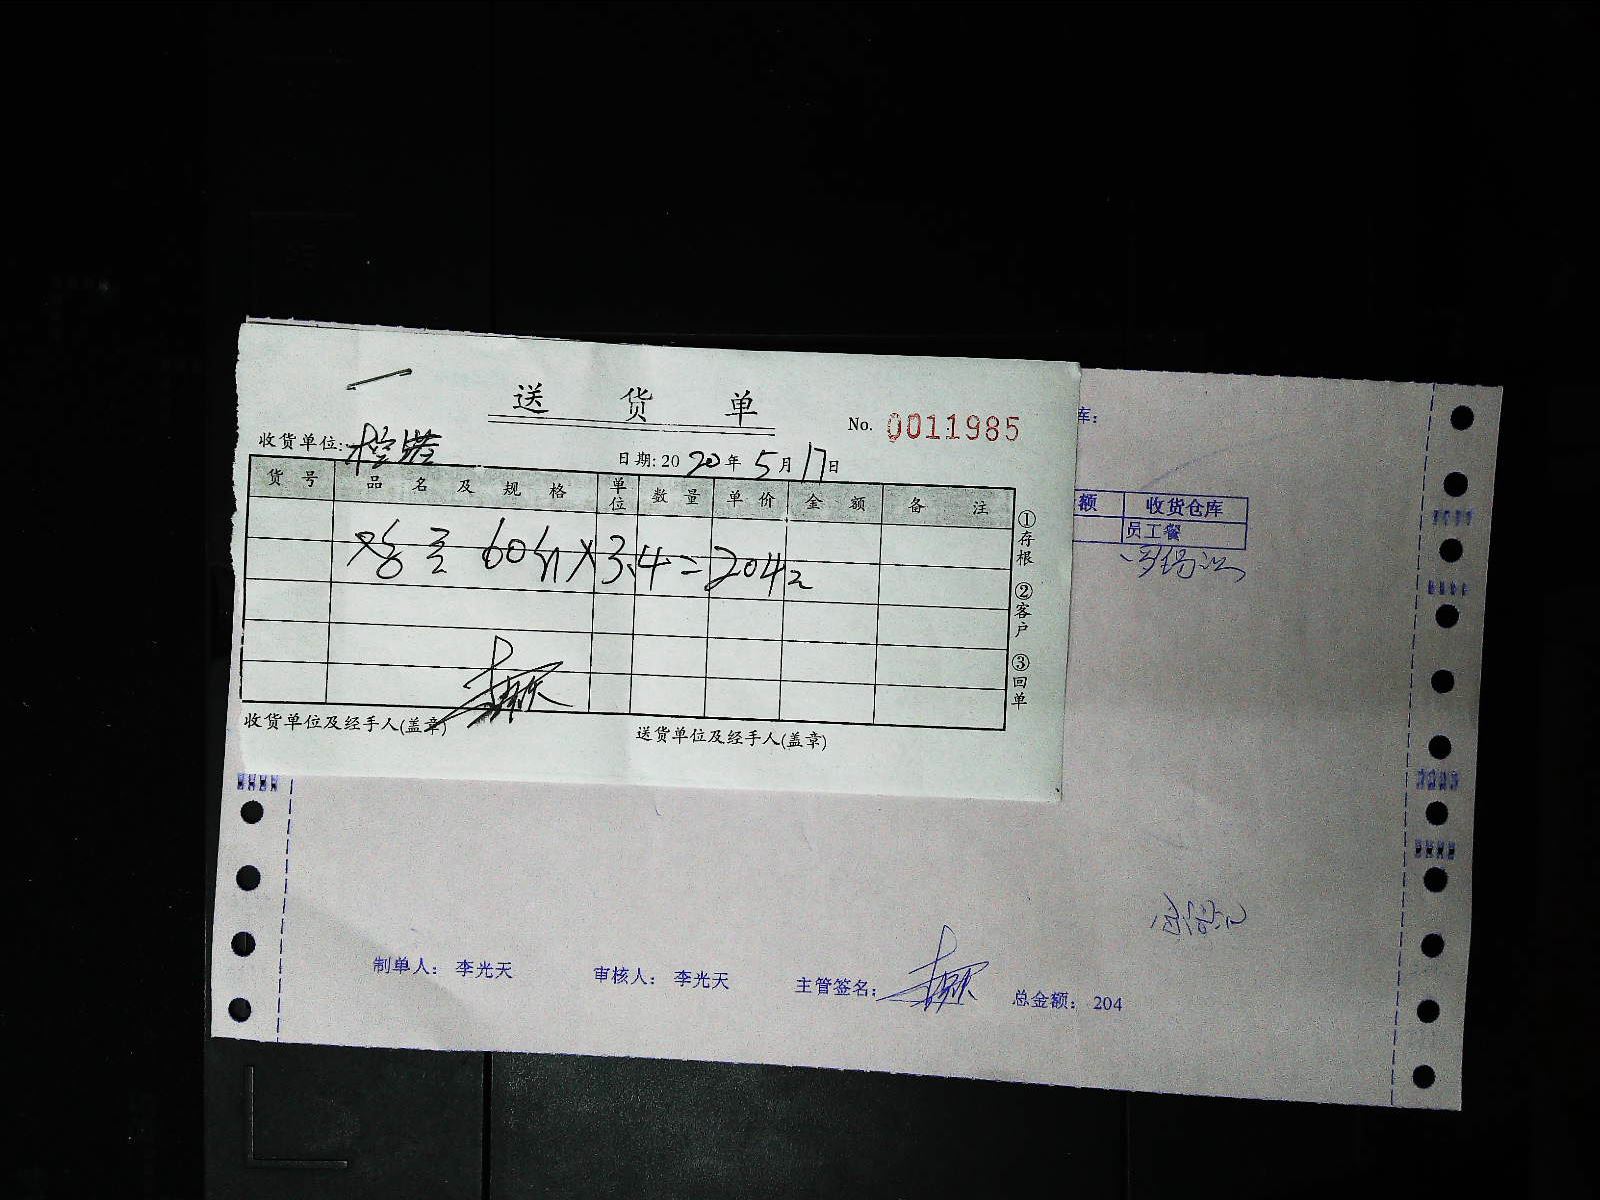 送货单
No. 0011985
收货单位:
日期: 2020年5月17日
货号 品名及规格 单位 数量 单价 金额 备注
鸡蛋 60斤×3.4=204元
①存根 ②客户 ③回单
收货单位及经手人(盖章)
送货单位及经手人(盖章)
库:
额 收货仓库
员工餐
制单人: 李光天 审核人: 李光天 主管签名: 总金额: 204